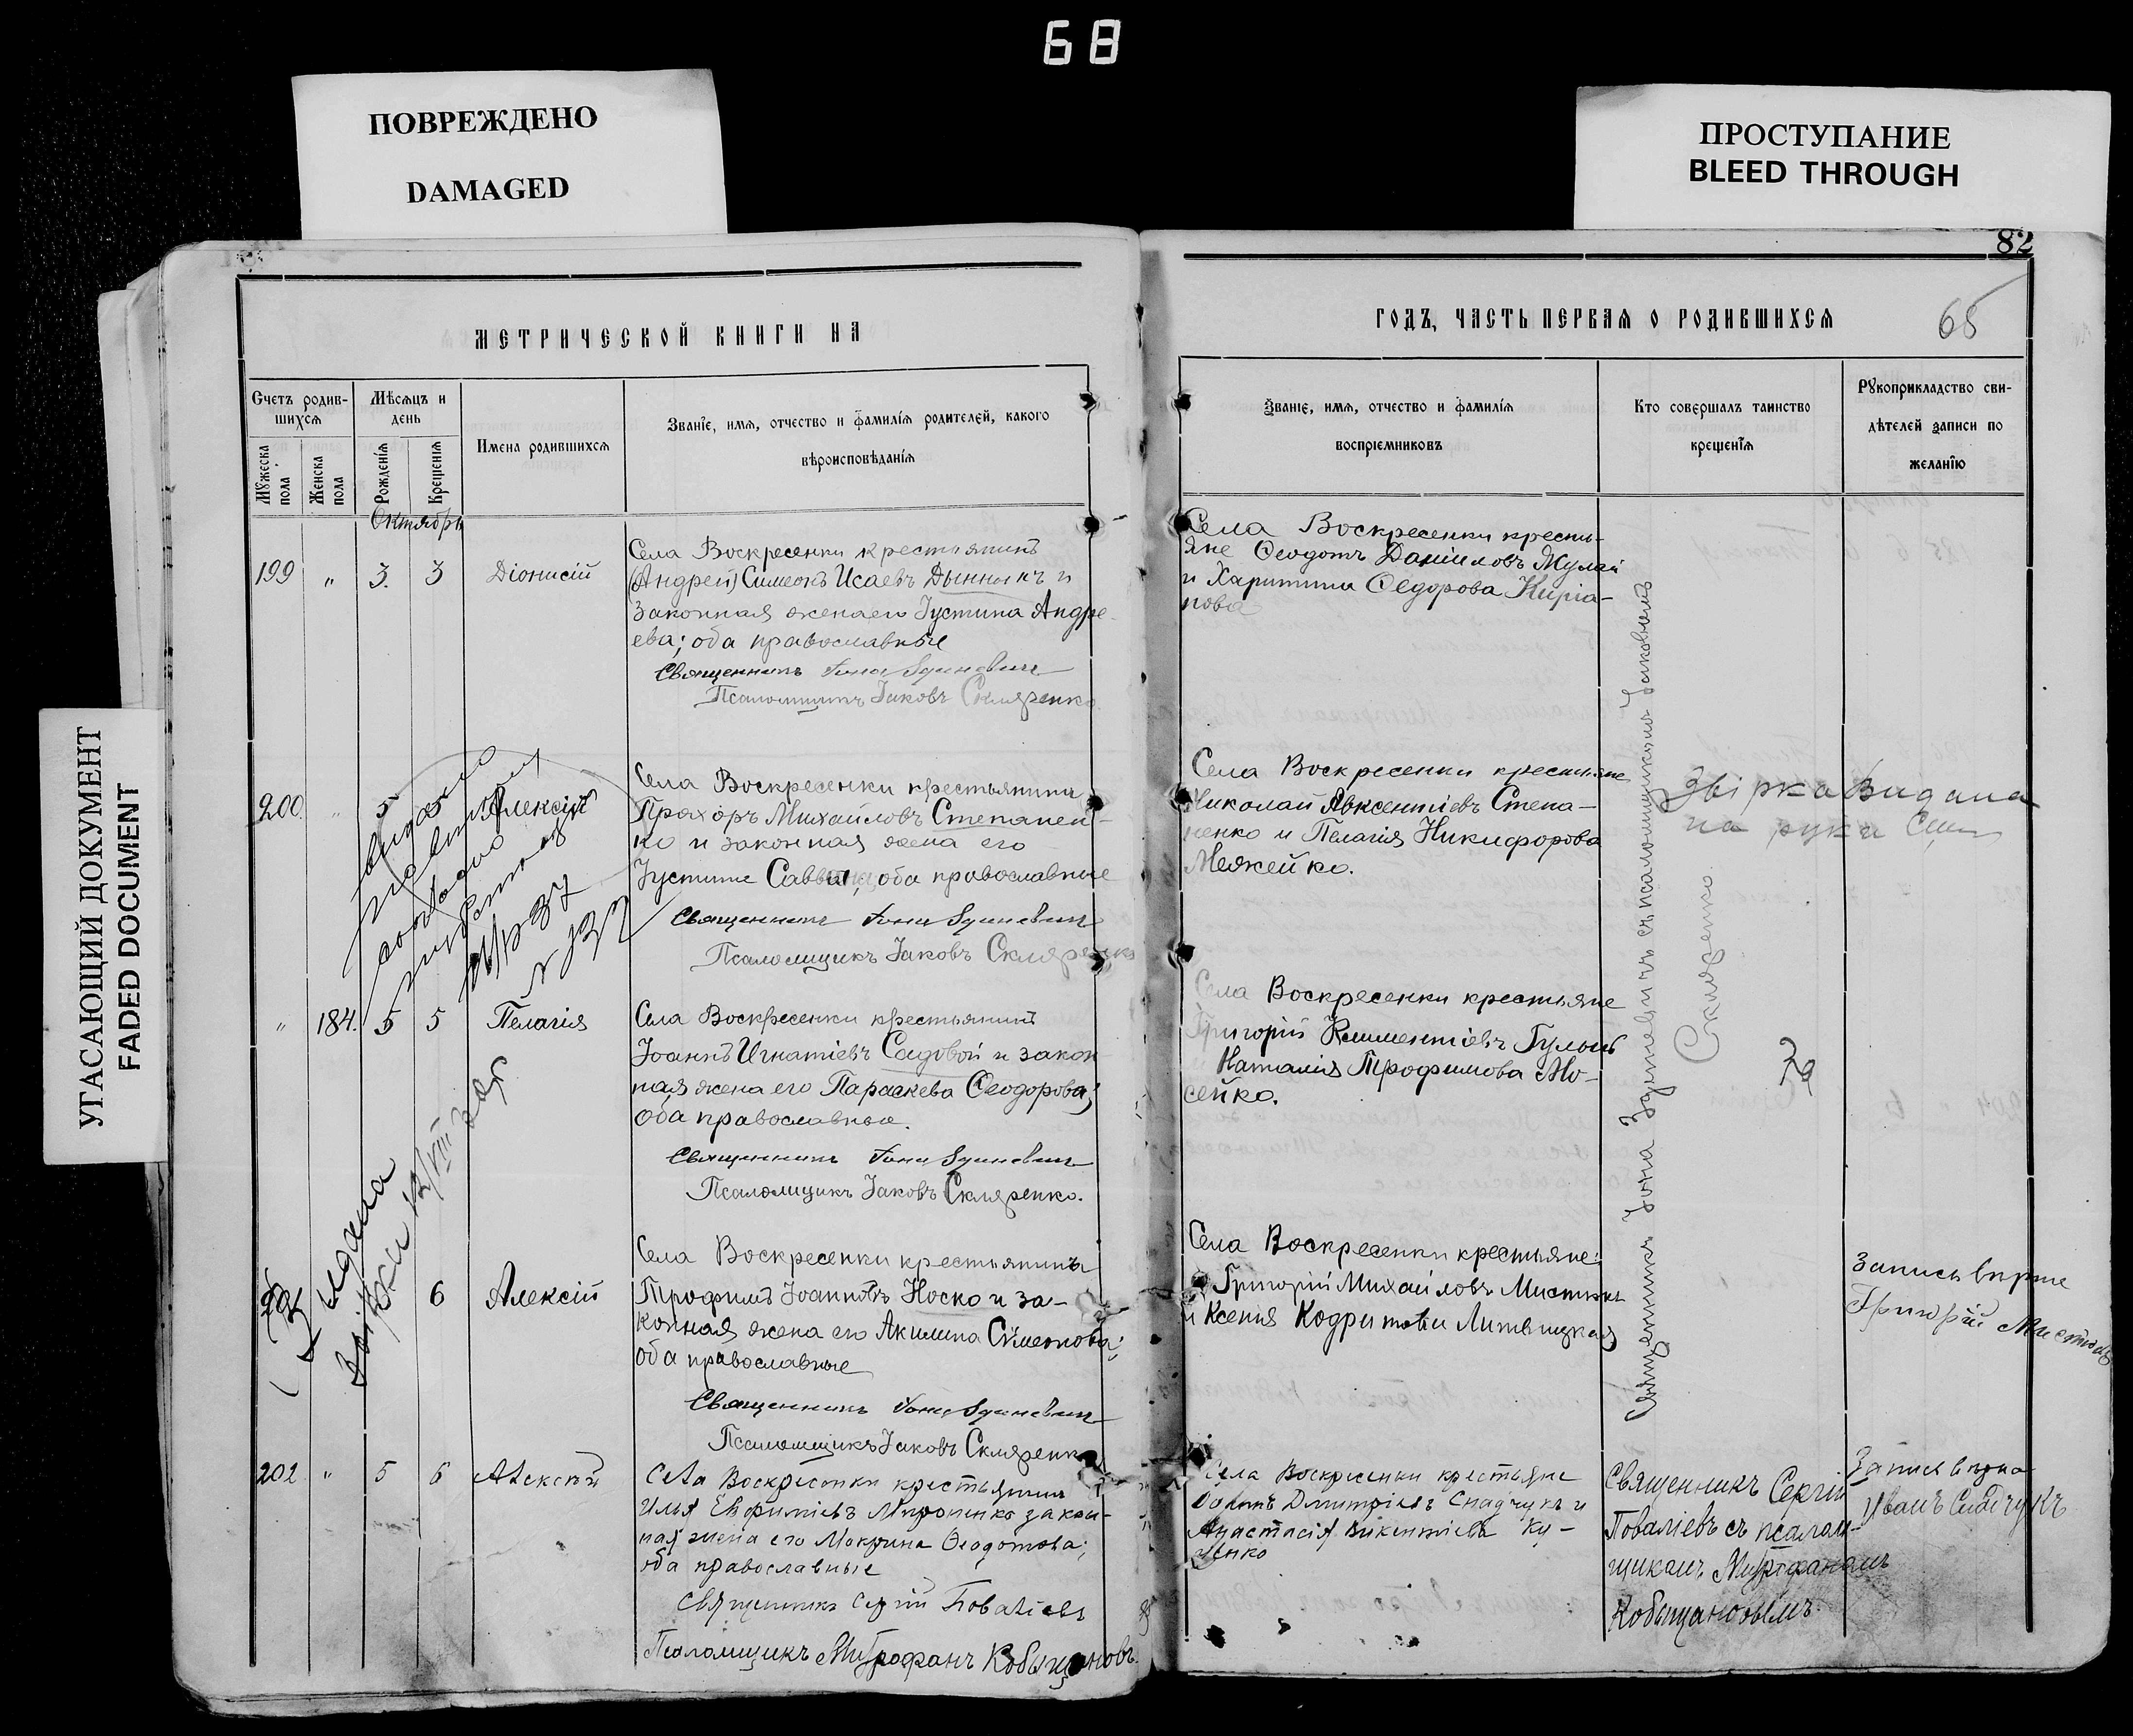 68
ПОВРЕЖДЕНО
DAMAGED
ПРОСТУПАНИЕ
BLEED THROUGH
УГАСАЮЩИЙ ДОКУМЕНТ
FADED DOCUMENT
82
65
МЕТРИЧЕСКОЙ КНИГИ НА
ГОДЪ, ЧАСТЬ ПЕРВАЯ О РОДИВШИХСЯ
Счетъ родив-
шихся
Мужеска пола
Женска пола
Мѣсяцъ и
день
Рожденія
Крещенія
Имена родившихся
Званіе, имя, отчество и фамилія родителей, какого
вѣроисповѣданія
Званіе, имя, отчество и фамилія
воспріемниковъ
Кто совершалъ таинство
крещенія
Рукоприкладство сви-
дѣтелей записи по
желанію
Октябрь
199 " 3. 3 Діонисій
Села Воскресенки крестьянинъ
(Андрей) Симеонъ Исаевъ Дынникъ и
законная жена его Іустина Андре-
ева; оба православные
Священникъ Іона
Псаломщикъ Іаковъ Скляренко
Села Воскресенки кресть-
яне Ѳеодотъ Даніиловъ Мулай
и Харитина Ѳедорова Кирга-
нова
200. " 5 5 Алексій
Села Воскресенки крестьянинъ
Прохоръ Михайловъ Степанен-
ко и законная жена его
Іустина Саввина, оба православные
Священникъ Іона
Псаломщикъ Іаковъ Скляренко
Села Воскресенки крестьяне
Николай Авксентіевъ Степа-
ненко и Пелагія Никифорова
Межейко.
Звірка Видана
на руки
N 132
" 184. 5 5 Пелагія
Села Воскресенки крестьянинъ
Іоаннъ Игнатіевъ Садовой и закон
ная жена его Параскева Ѳеодорова;
оба православные.
Священникъ Іона
Псаломщикъ Іаковъ Скляренко.
Села Воскресенки крестьяне
Григорій Климентіевъ Гулый
Наталія Трофимова Мо-
сейко.
Священникъ Іона съ псаломщикомъ Іаковомъ
Скляренко
Видана
6 Алексій
Села Воскресенки крестьянинъ
Трофимъ Іоанновъ Носко и за-
конная жена его Акилина Симеонова;
оба православные
Священникъ Іона
Псаломщикъ Іаковъ Скляренко
Села Воскресенки крестьяне:
Григорій Михайловъ
и Ксенія Литвицкая
Запись вѣрна
Григорій
202 " 5 6 Алексѣй
Села Воскресенки крестьянинъ
Илья Евфиміевъ Мироненко закон-
ная жена его Мокрина Ѳеодотова;
оба православные
Священникъ Сергій Поваліевъ
Псаломщикъ Митрофанъ Кобыщановъ.
Села Воскресенки крестьяне
Дмитріевъ Снадчукъ и
Анастасія Викентіева Ку-
ценко
Священникъ Сергій
Поваліевъ съ псалом-
щикомъ Митрофаномъ
Кобыщановымъ.
Запись вѣрна
Иванъ Снадчукъ